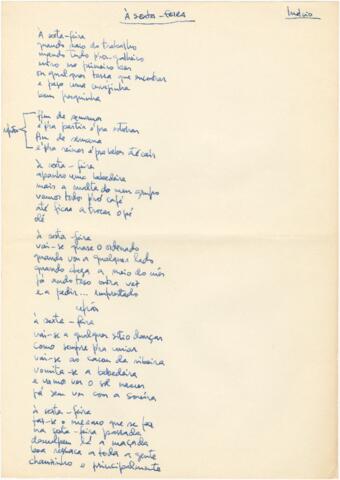 À sexta-feira
Inédito
À sexta-feira
quando saio do trabalho
mando tudo pro galheiro
entro no primeiro bar
ou qualquer tasca que encontrar
e peço uma cervejinha
bem fresquinha
refrão
fim de semana
é p'ra partir é p'ra estoirar
fim de semana
é p'ra reinar é p'ra beber até cair
À sexta-feira
apanho uma bebedeira
mais a malta do meu grupo
vamos todos pró café
até ficar a trocar o pé
dé
À sexta-feira
vai-se quase o ordenado
quando vou a qualquer lado
quando chega a meio do mês
já ando teso outra vez
e a pedir... emprestado
refrão
à sexta-feira
vai-se a qualquer sítio dançar
como sempre p'ra variar
vai-se ao cacau da ribeira
vomita-se a bebedeira
e vamos ver o sol nascer
já sem voz com a soneira
À sexta-feira
faz-se o mesmo que se fez
na sexta-feira passada
desculpem lá a maçada
boa ressaca a toda a gente
e principalmente